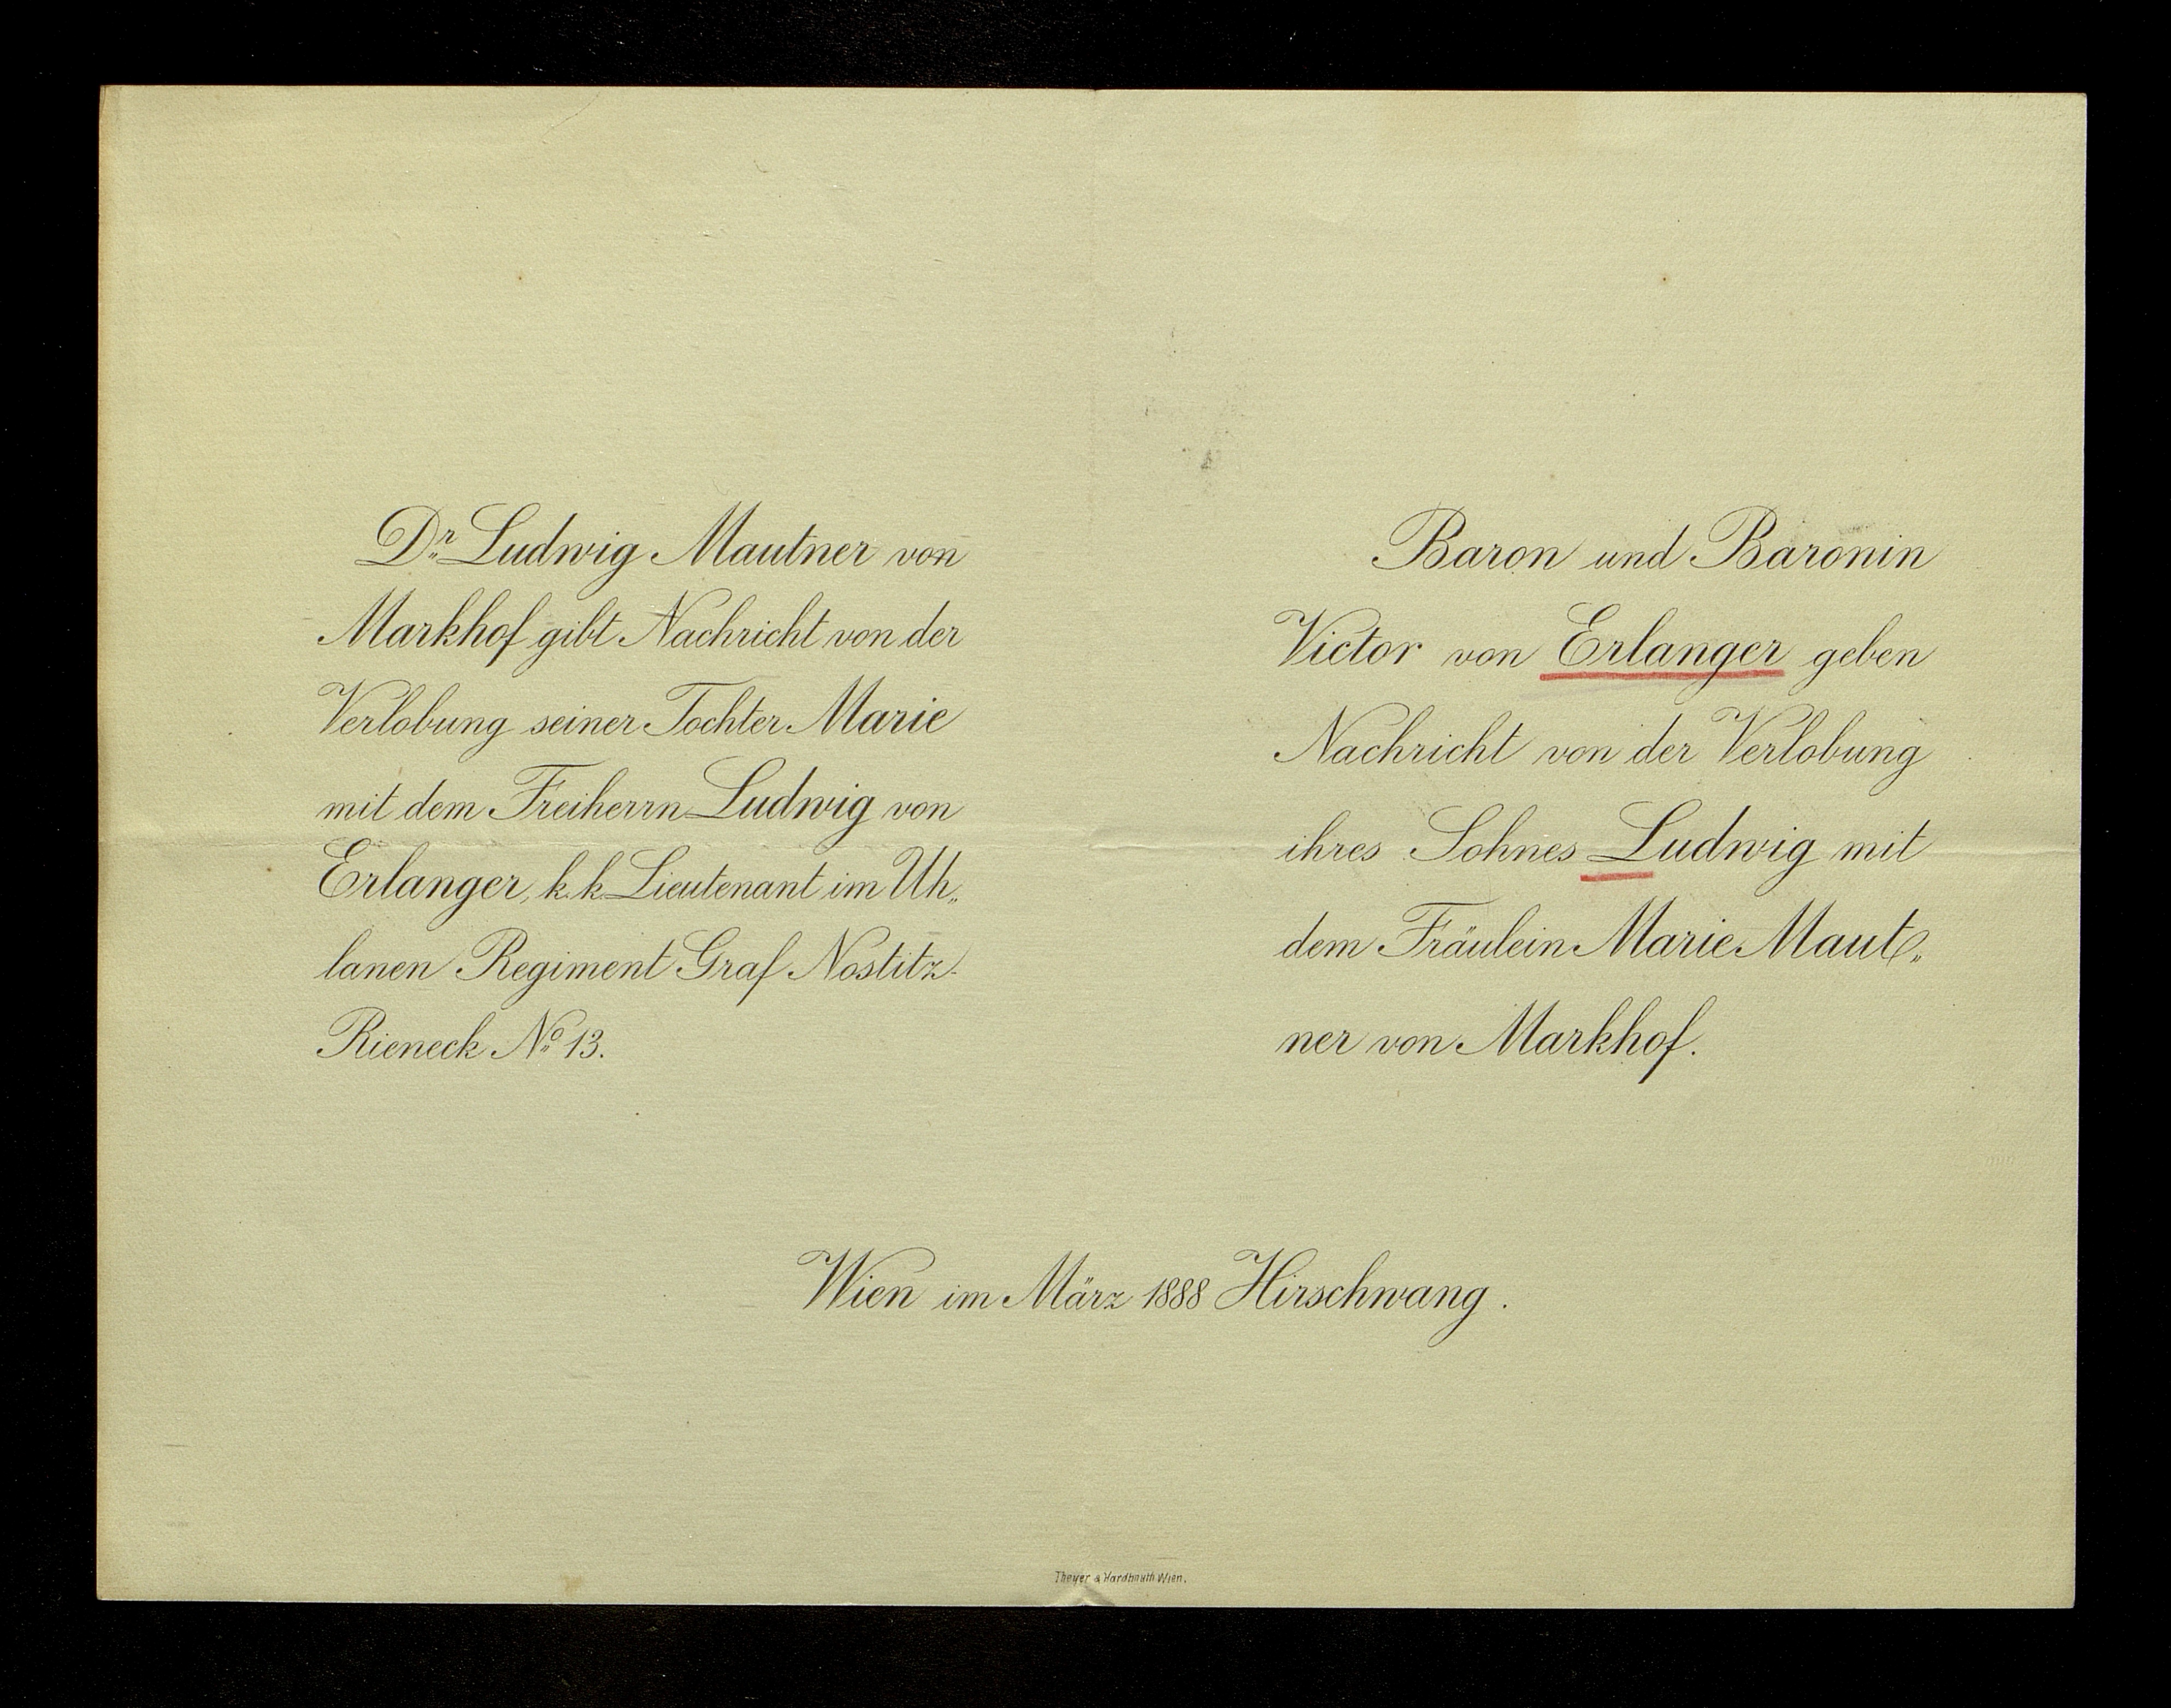 Dr. Ludwig Mautner von
Markhof gibt Nachricht von der
Verlobung seiner Tochter Marie
mit dem Freiherrn Ludwig von
Erlanger, k. k. Lieutenant im Uh„
lanen Regiment Graf Nostitz-
Rieneck No. 13.
Baron und Baronin
Victor von Erlanger geben
Nachricht von der Verlobung
ihres Sohnes Ludwig mit
dem Fräulein Marie Maut„
ner von Markhof.
Wien im März 1888 Hirschwang.
Theyer & Hardtmuth Wien.